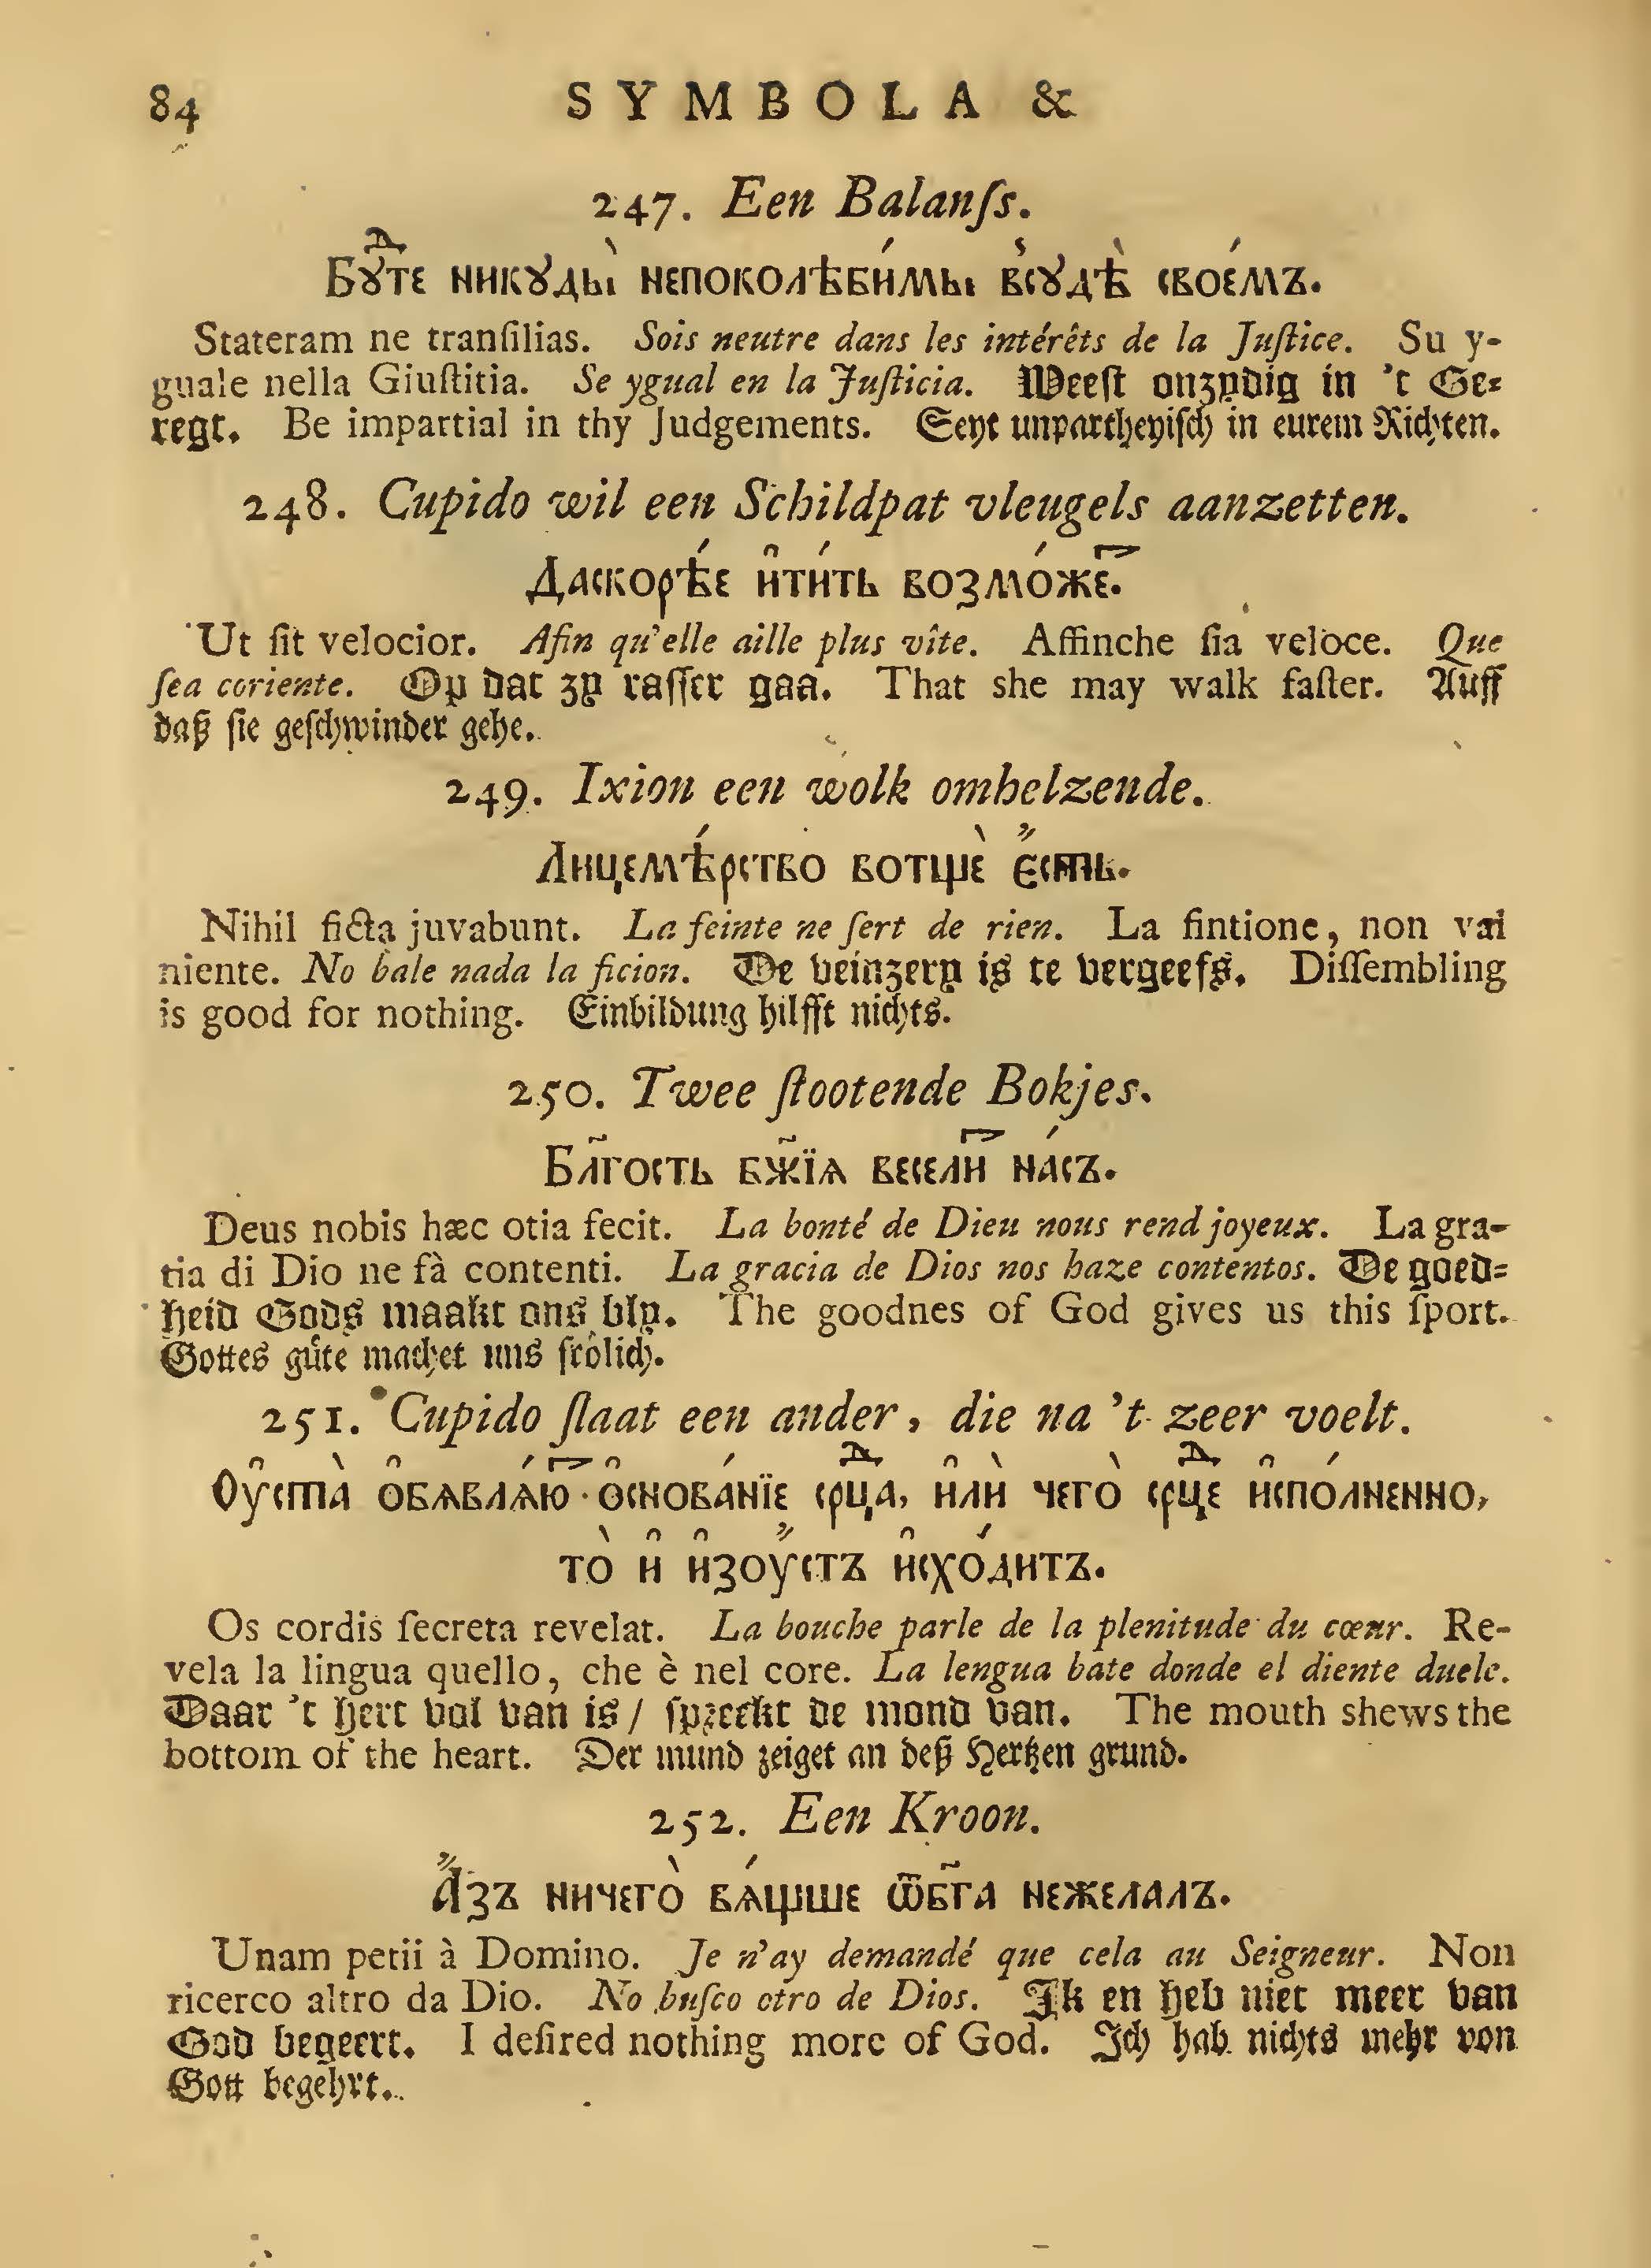 84 SYMBOLA &
247. Een Balanſs.
Бꙋⷣте никꙋды̀ непоколѣби́мы в̾сꙋдѣ̀ свое́мъ.
Stateram ne tranſilias. Sois neutre dans les intérêts de la Juſtice. Su y-
guale nella Giuſtitia. Se ygual en la Juſticia. Weeſt onzydig in 't Ge-
regt. Be impartial in thy Judgements. Seyt unpartheyiſch in eurem Richten.
248. Cupido wil een Schildpat vleugels aanzetten.
Даскорѣ́е и҆ти́ть возмо́жеⷮ.
Ut ſit velocior. Afin qu'elle aille plus vîte. Affinche ſia veloce. Que
ſea coriente. Op dat zy raſſer gaa. That she may walk faſter. Auff
daß ſie geſchwinder gehe.
249. Ixion een wolk omhelzende.
Лицемѣ́рство вотщѐ є҆́сть.
Nihil ficta juvabunt. La feinte ne ſert de rien. La fintione, non val
niente. No bale nada la ficion. De veinzery is te vergeefs. Diſſembling
is good for nothing. Einbildung hilfft nichts.
250. Twee ſtootende Bokjes.
Бл҃гость бж҃їѧ весели́ⷮ на́съ.
Deus nobis hæc otia fecit. La bonté de Dieu nous rend joyeux. La gra-
tia di Dio ne fà contenti. La gracia de Dios nos haze contentos. De goed-
heid Gods maakt ons bly. The goodnes of God gives us this ſport.
Gottes güte machet uns frölich.
251. Cupido ſlaat een ander, die na 't zeer voelt.
Оу҆ста̀ о҆бѧвлѧ́юⷮ о҆снова́нїе срⷣца, и҆лѝ чего̀ срⷣце и҆спо́лненно,
то̀ и҆ и҆зоу҆́стъ и҆схо́дитъ.
Os cordis ſecreta revelat. La bouche parle de la plenitude du cœur. Re-
vela la lingua quello, che è nel core. La lengua bate donde el diente duele.
Daar 't hert vol van is / ſpreekt de mond van. The mouth shews the
bottom of the heart. Der mund zeiget an deß Hertzen grund.
252. Een Kroon.
А҆́зъ ничего̀ вѧ́щше ѿбг҃а нежелалъ.
Unam petii à Domino. Je n'ay demandé que cela au Seigneur. Non
ricerco altro da Dio. No buſco otro de Dios. Ik en heb niet meer van
God begeert. I deſired nothing more of God. Ich hab nichts mehr von
Gott begehrt.